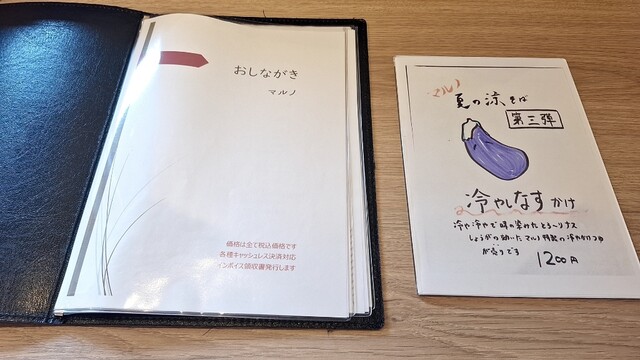 おしながき
マルノ
価格は全て税込価格です
各種キャッシュレス決済対応
インボイス領収書発行します
マルノ
夏の涼そば
第三弾
冷やしなすかけ
冷や冷やで味の染みたとろ〜りナス
しょうがの効いたマルノ特製の冷やかけつゆ
が売りです
1200円